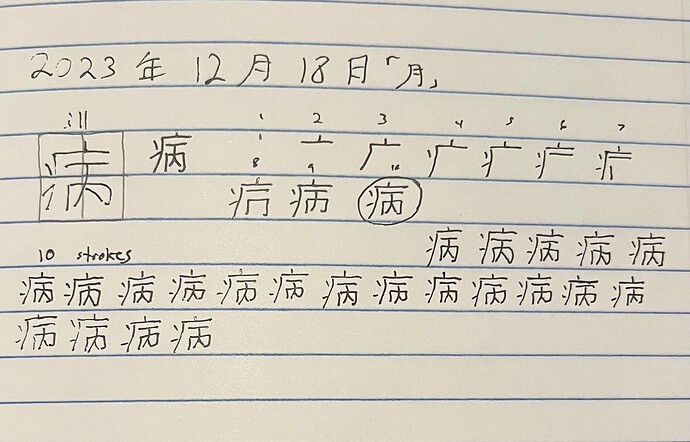 2023年 12月 18日「月」
1 2 3 4 5 6 7
病 病 丶 亠 广 疒
8 9 10
病 病
病 病 病 病 病
10 strokes
病 病 病 病 病 病 病 病 病 病 病 病 病
病 病 病 病